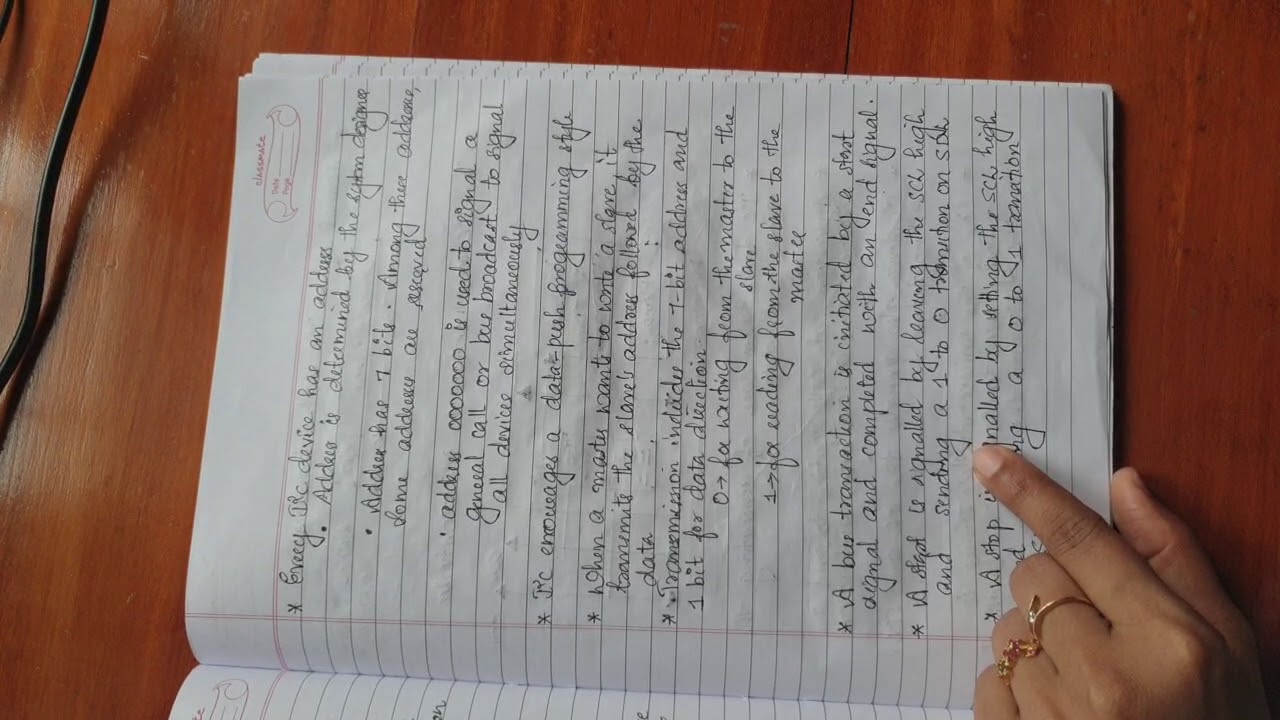 classmate
Date
Page
* Every I²C device has an address
• Address is determined by the system designer
• Address has 7 bits. Among these address,
some address are reserved
• address 0000000 is used to signal a
general call or bus broadcast to signal
all devices simultaneously
* I²C encourages a data-push programming style
* When a master wants to write a slave it
transmits the slave's address followed by the
data
* Transmission includes the 7-bit address and
1 bit for data direction.
0 → for writing from the master to the
slave
1 → for reading from the slave to the
master
* A bus transaction is initiated by a start
signal and completed with an end signal.
* A start is signalled by leaving the SCL high
and sending a 1 to 0 transition on SDA
* A stop is signalled by setting the SCL high
a 0 to 1 transition